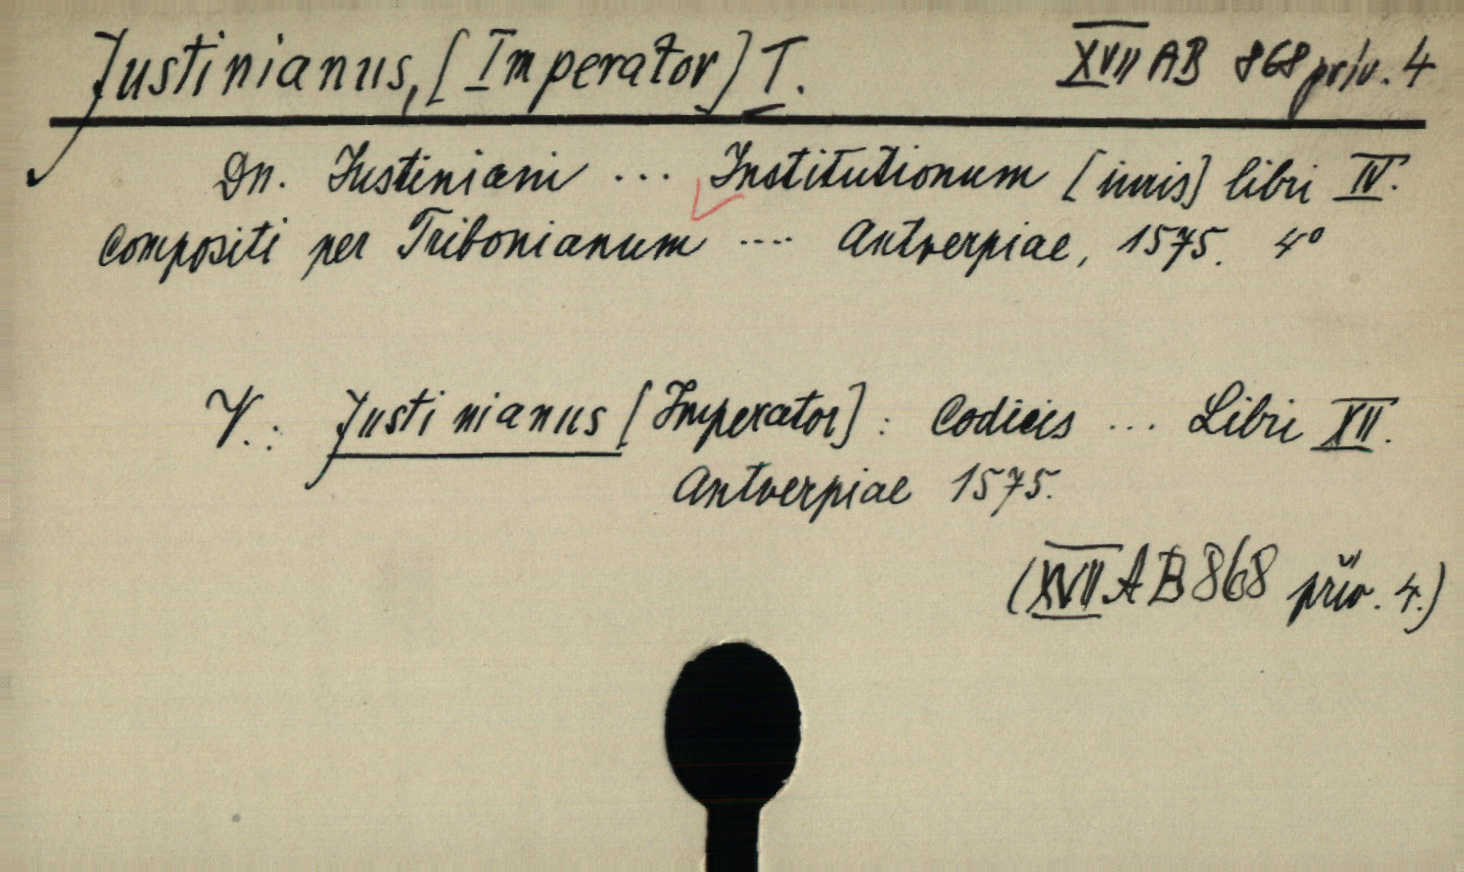 Justinianus, [Imperator] I. XVII AB 868 přiv. 4
Dn. Iustiniani ... Institutionum [iuris] libri IV.
Compositi per Tribonianum .... Antverpiae, 1575. 4°
V.: Justinianus [Imperator]: Codicis ... Libri XII.
Antverpiae 1575.
(XVII AB 868 přiv. 4.)